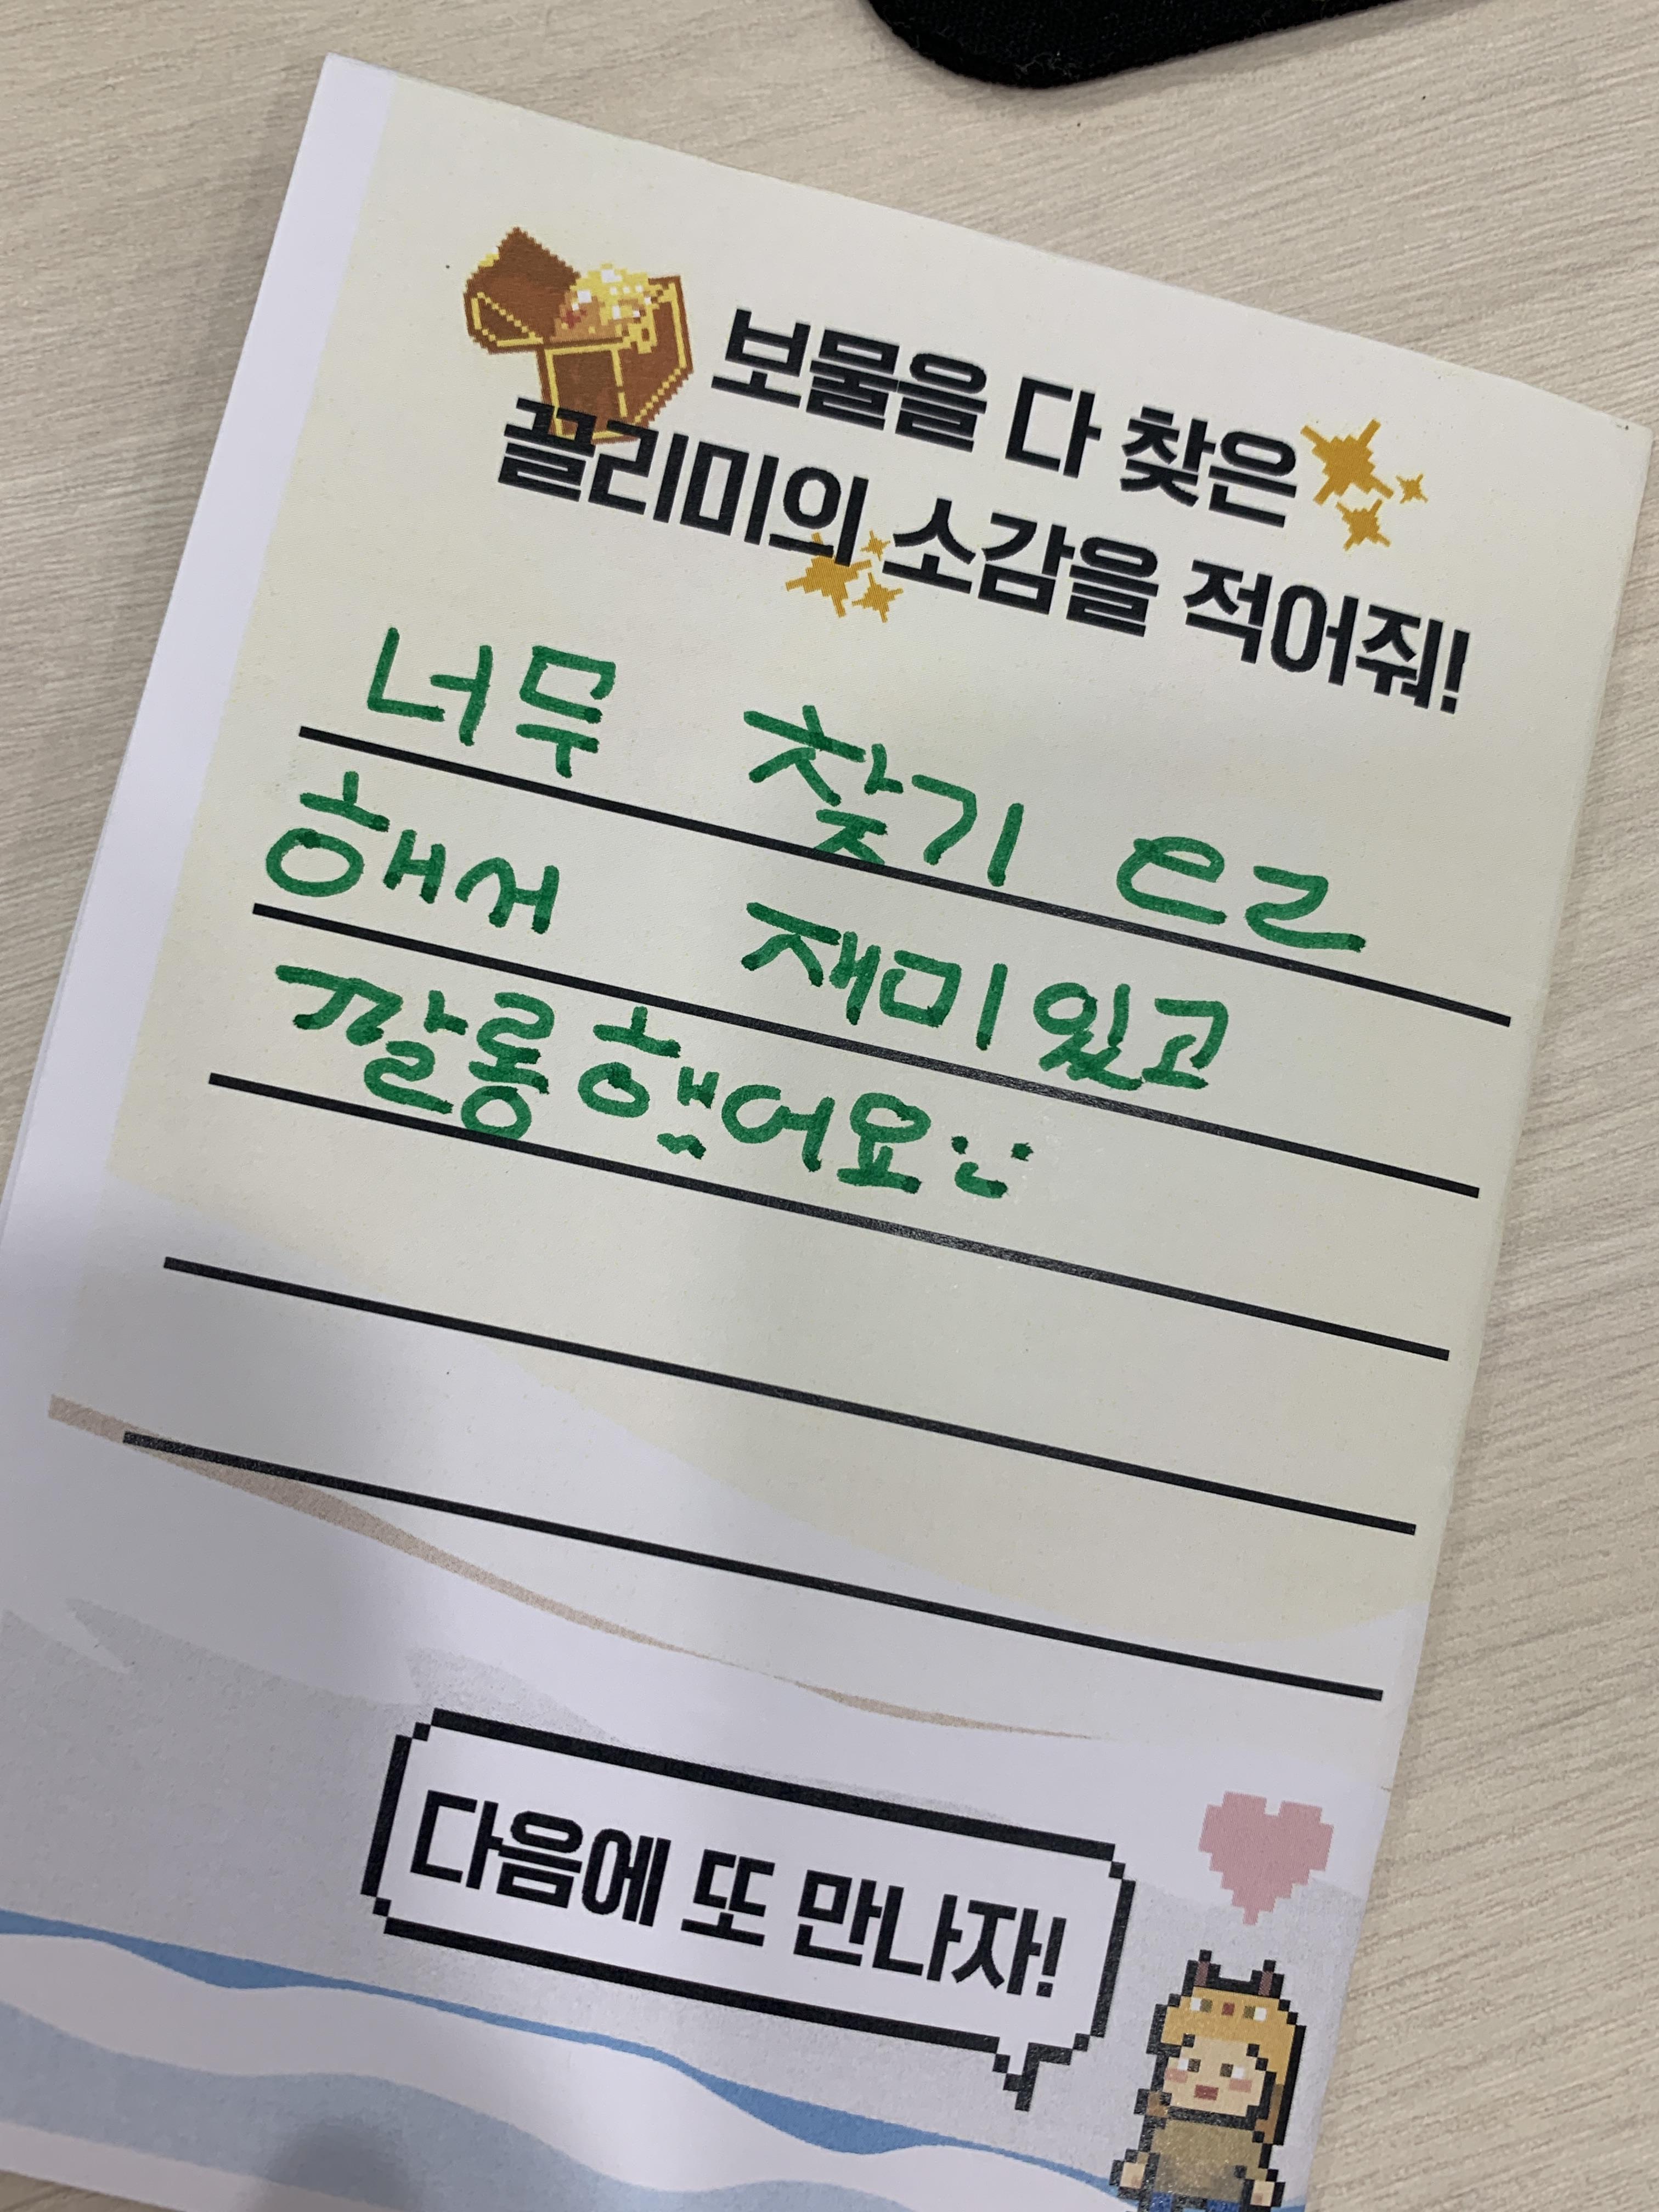 보물을 다 찾은
끌리미의 소감을 적어줘!
너무 찾기 ez
해서 재미있고
깔롱했어요 :)
다음에 또 만나자!